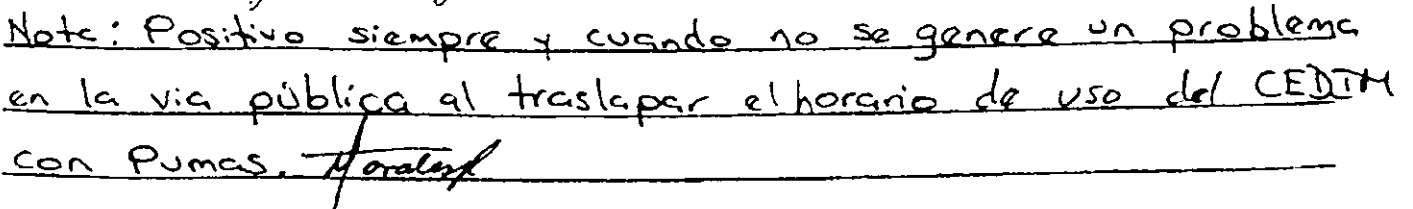 Nota: Positivo siempre y cuando no se genere un problema
en la via pública al traslapar el horario de uso del CEDTM
con Pumas. Morales